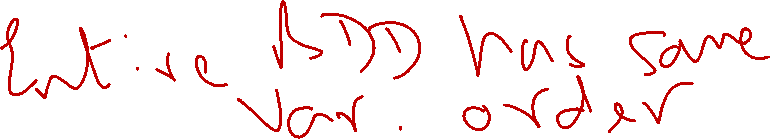 Entire BDD has same
var. order